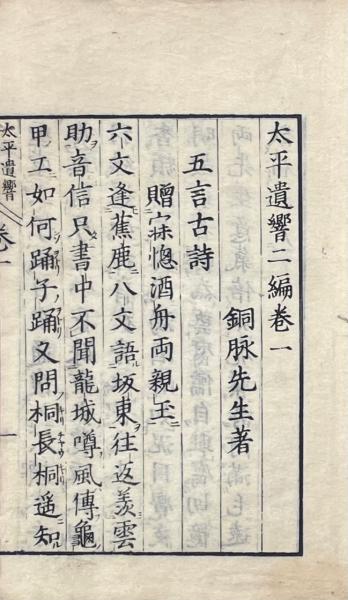 太平遺響二編卷一
銅脉先生著
五言古詩
贈寐惚酒舟両親玉
六文逢蕉鹿八文語坂東往返羨雲
助音信只書中不聞龍城噂風傳龜
甲工如何踊子踊又問桐長桐遥知
太平遺響 卷一 一